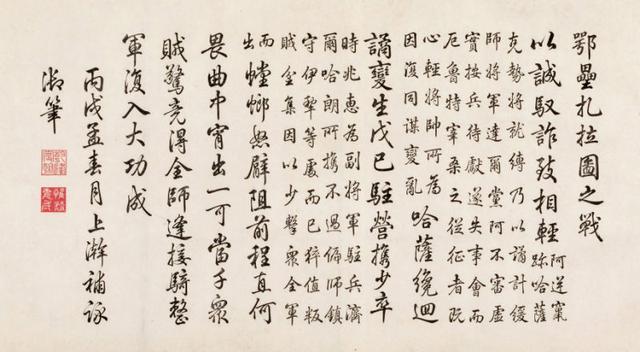 鄂壘扎拉圖之戰
以誠馭詐致相輕
阿逆竄
跡哈薩
克勢將就縛乃以譎計緩
師將軍達爾黨阿不審虛
實按兵待獻遂失事會而
厄魯特宰桑之從征者旣
心輕將帥所為
因復同謀變亂
哈薩纔迴
譎變生戊己駐營攜少卒
時兆惠為副將軍駐兵濟
爾哈朗所攜不過偏師鎮
守伊犂等處而已猝值叛
賊坌集因以少擊衆全軍
而
出
螳螂怒臂阻前程直何
畏曲巾宵出一可當千衆
賊驚竟得全師逢接騎整
軍復入大功成
丙戌孟春月上澣補詠
御筆